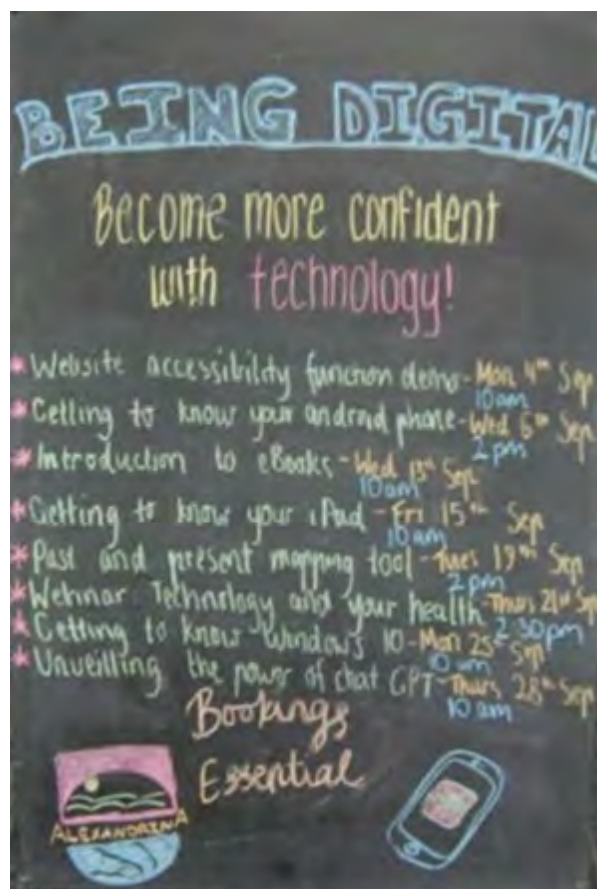 BEING DIGITAL
Become more confident
with technology!
* Website accessibility function demo - Mon 4th Sep
10am
* Getting to know your android phone - Wed 6th Sep
2pm
* Introduction to eBooks - Wed 13th Sep
10am
* Getting to know your iPad - Fri 15th Sep
10am
* Past and present mapping tool - Tues 19th Sep
2pm
* Webinar Technology and your health - Thurs 21st Sep
2:30pm
* Getting to know Windows 10 - Mon 25th Sep
10am
* Unveilling the power of chat GPT - Thurs 28th Sep
10am
Bookings
Essential
ALEXANDRINA